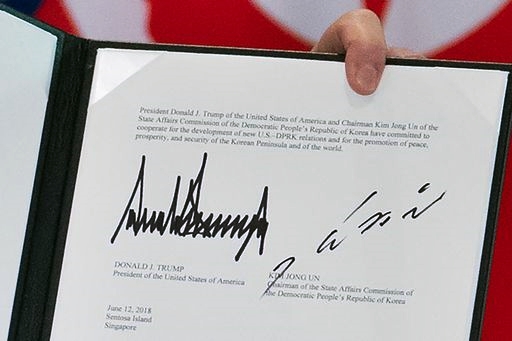 President Donald J. Trump of the United States of America and Chairman Kim Jong Un of the
State Affairs Commission of the Democratic People's Republic of Korea have committed to
cooperate for the development of new U.S.–DPRK relations and for the promotion of peace,
prosperity, and security of the Korean Peninsula and of the world.
DONALD J. TRUMP
President of the United States of America
KIM JONG UN
Chairman of the State Affairs Commission of
the Democratic People's Republic of Korea
June 12, 2018
Sentosa Island
Singapore